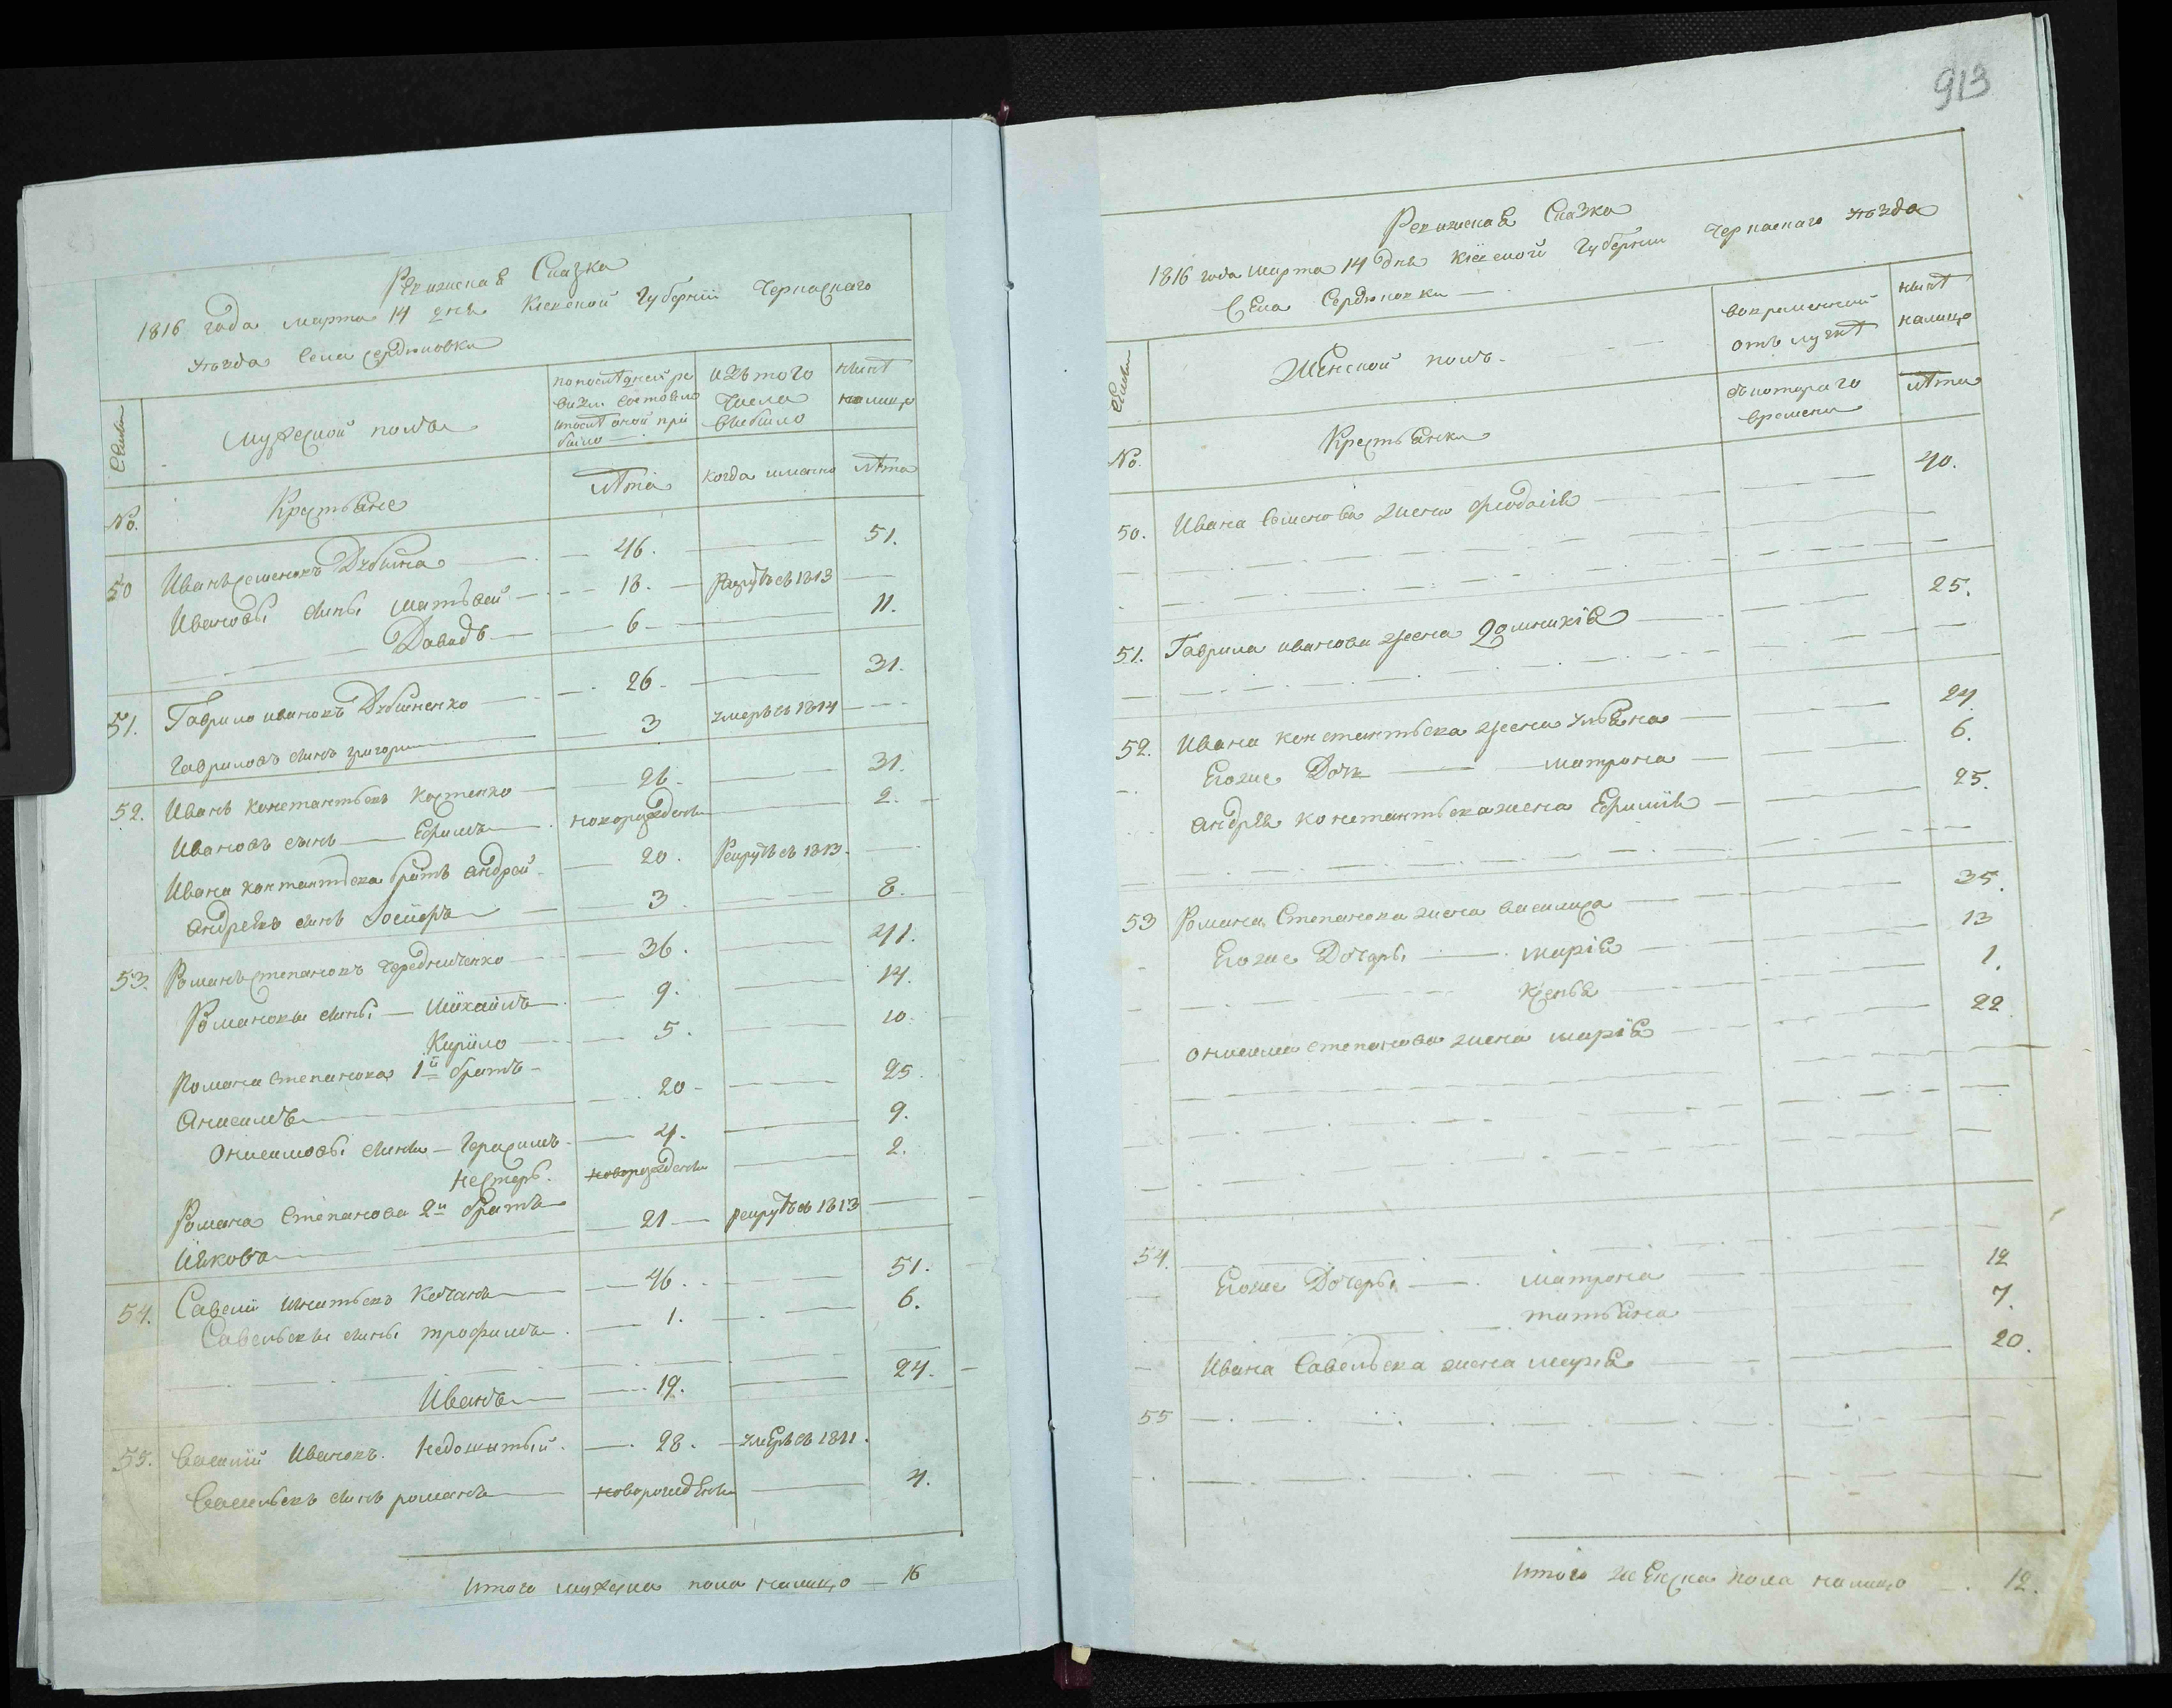 Ревижская Сказка
1816 года марта 14 дня Кіевской Губерніи Черкаскаго
уезда Села Сердюковки
Семьи
Мужеской полъ
по последней ре
визіи состояло
и после оной при
было
изъ того
числа
выбыло
ныне
налицо
№.
Крестьяне
лета
когда именно
лета
50 Иванъ Семеновъ Дзюбина 46. 51.
Ивановы сыны Матвей 18. рекрутъ въ 1813
Давидъ 6 11.
51. Гаврило Ивановъ Дзюбиненко 26 31.
Гавриловъ сынъ Григори 3 умеръ въ 1814
52. Иванъ Константьевъ Костенко 26 31.
Ивановъ сынъ Ефимъ новорожденъ 2.
Ивана Константьева братъ Андрей 20. Рекрутъ въ 1813.
Андреевъ сынъ 3 8.
53. Романъ Степановъ Чередниченко 36. 41.
Романовы сыны Михайлъ 9. 14.
Кирило 5. 10
Романа Степанова 1й братъ
Анисимъ 20 25.
Онисимовы сыны Герасимъ 4. 9.
Нестеръ. новорожденъ 2.
Романа Степанова 2й братъ
Яковъ 21 рекрутъ въ 1813
54. Савелій Игнатьевъ Кочанъ 46. 51.
Савельевы сыны трофимъ. 1. 6.
Иванъ 19. 24.
55. Василій Ивановъ. Недошитый. 28. умеръ въ 1811.
Васильевъ сынъ романъ новорожденъ 4.
Итого мужеска пола налицо 16
913
Ревижская Сказка
1816 года марта 14 дня Кіевской Губерніи Черкаскаго уезда
Села Сердюковки
Семьи
Женской полъ.
Во временной
отлучке
ныне
налицо
№.
Крестьянки
съ котораго
времени
лета
50. Ивана Семенова жена Феодосія 40.
51. Гаврила Иванова жена Домникія 25.
52. Ивана Константьева жена Ульяна 24
Егоже Дочь матрона 6.
Андрея Константьева жена Ефимія 25.
53 Романа Степанова жена василиса 35.
Егоже Дочери марія 13
Ксенья 1.
Онисима степанова жена марія 22
54.
Егоже Дочери матрона 12
татьяна 7.
Ивана Савельева жена марія 20.
55
Итого женска пола налицо 12.